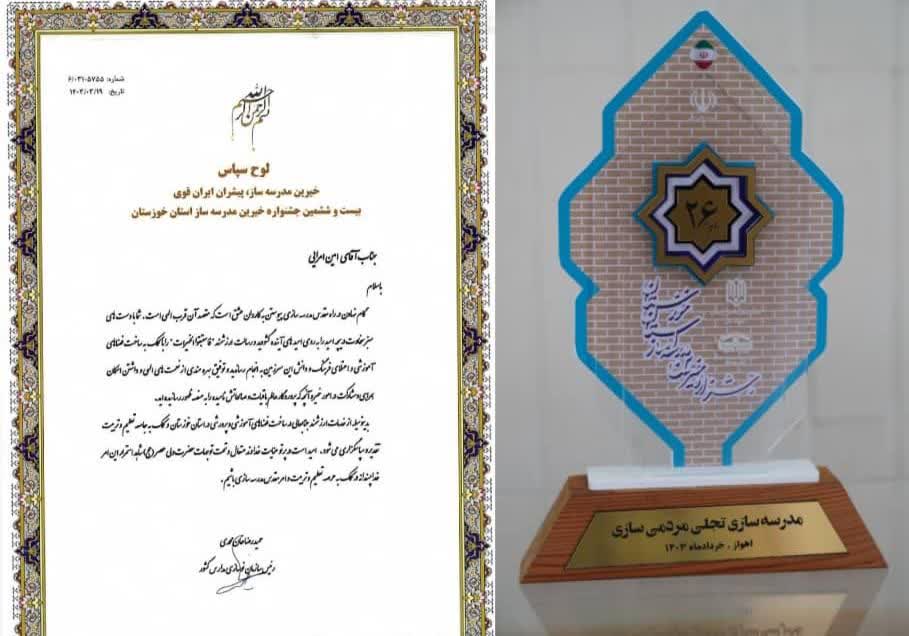 شماره: ۶/۰۳۱۰۵۷۵۵
تاریخ: ۱۴۰۳/۰۳/۱۹
بسم الله الرحمن الرحیم
لوح سپاس
خیرین مدرسه ساز، پیشران ایران قوی
بیست و ششمین جشنواره خیرین مدرسه ساز استان خوزستان
جناب آقای امین امرایی
با سلام
گام نهادن در راه مقدس مدرسه سازی پیوستن به کاروان عشق است که مقصد آن قرب الهی است. شما با دست های
سبز سخاوت دریچه امید را به روی امیدهای آینده گشودید و رسالت ارزشمند "فاستبقوا الخیرات" را با کمک به ساخت فضاهای
آموزشی و اعتلای فرهنگ و دانش این سرزمین به انجام رساندید و توفیق بهره مندی از نعمت های الهی و داشتن امکان
همراهی و مشارکت در امور خیر و آنچه که پروردگار عالم باقیات و صالحاتش نامیده را به منصه ظهور رسانده اید.
بدینوسیله از خدمات ارزشمند جنابعالی در ساخت فضاهای آموزشی و پرورشی در استان خوزستان و کمک به جامعه تعلیم و تربیت
تقدیر و سپاسگزاری می شود. امید است در پرتو عنایات خداوند متعال و تحت توجهات حضرت ولی عصر (عج) شاهد استمرار این امر
خداپسندانه در کمک به عرصه تعلیم و تربیت و امر مقدس مدرسه سازی باشیم.
حمیدرضا خان محمدی
رئیس سازمان نوسازی مدارس کشور
۲۶
جشنواره خیرین مدرسه ساز
استان خوزستان
مدرسه سازی تجلی مردمی سازی
اهواز . خردادماه ۱۴۰۳